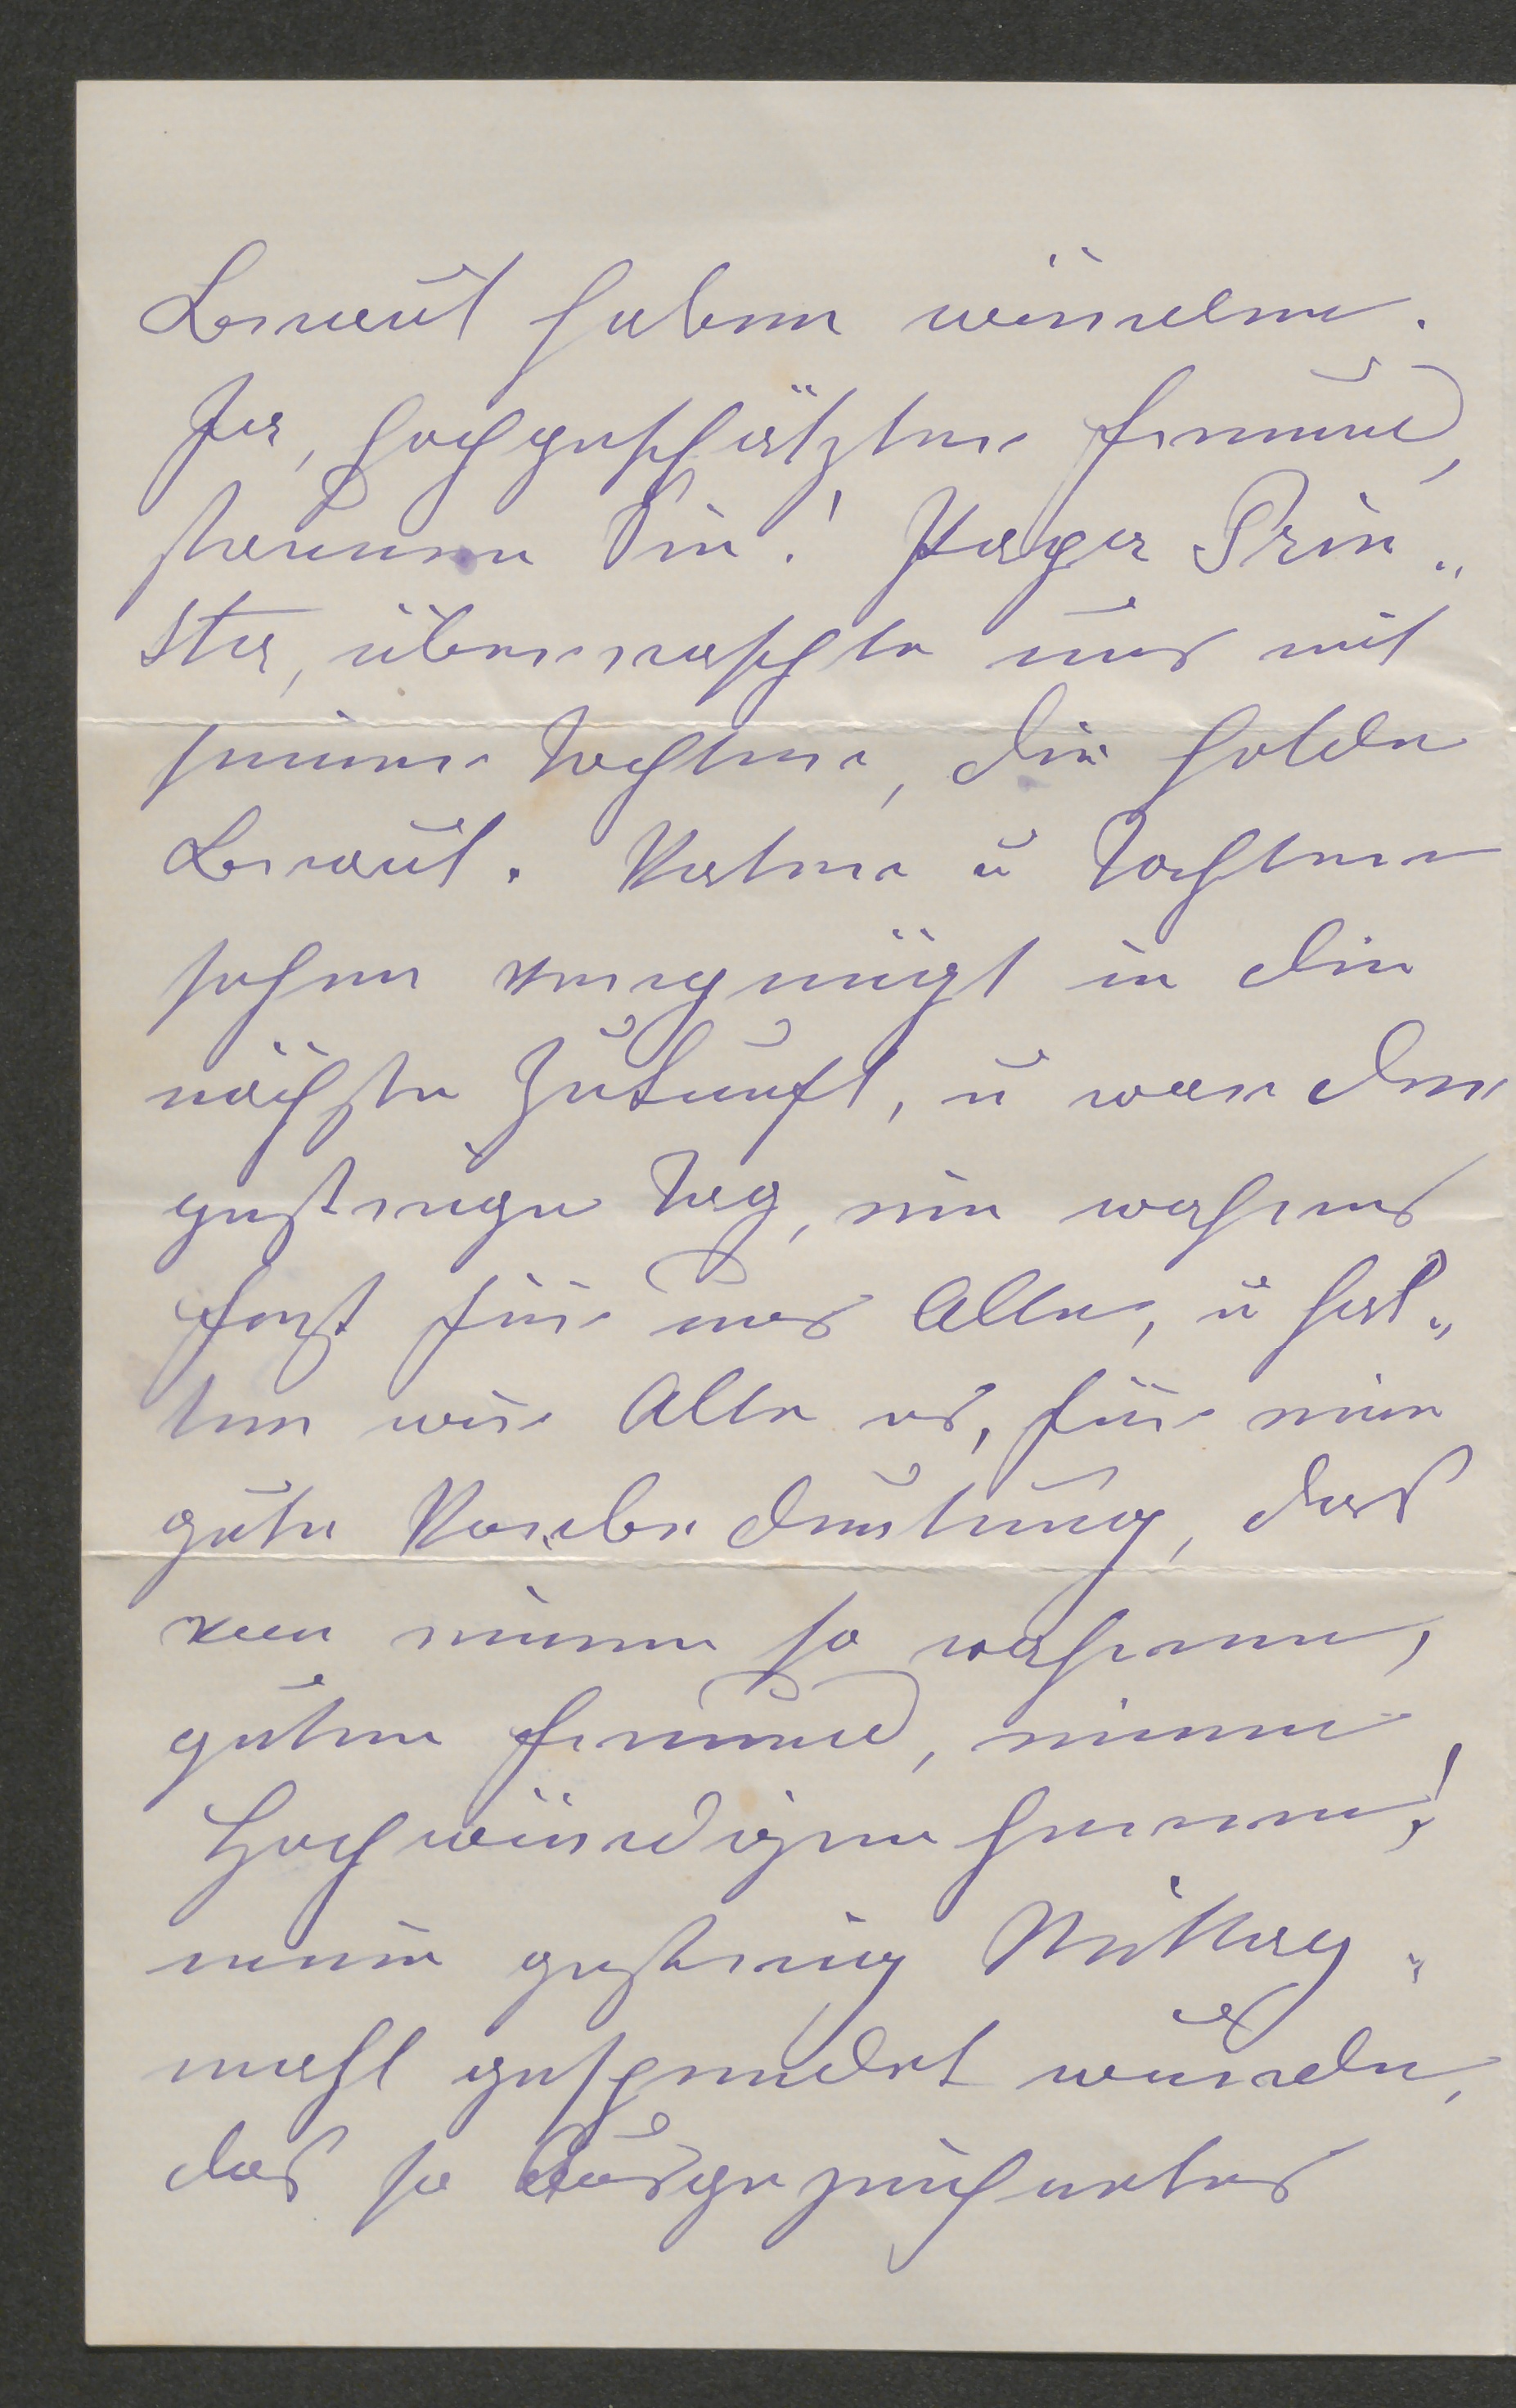 Braut haben würden.
Ja, hochgeschätzter Freund,
staunen Sie! Papa Prin„
ster, überraschte uns mit
seiner Tochter, die holde
Braut. Vater u Tochter
sehen vergnügt in die
nächste Zukunft, u war der
gestrige Tag, ein wahres
Fest für uns Alle, u hal„
ten wir Alle es, für eine
gute Vorbedeutung, daß
von einem so wahren,
guten Freund, einem
Hochwürdigen Herrn!
unser gestrig Mittag„
mahl gespendet wurde,
das so Ausgezeichnetes